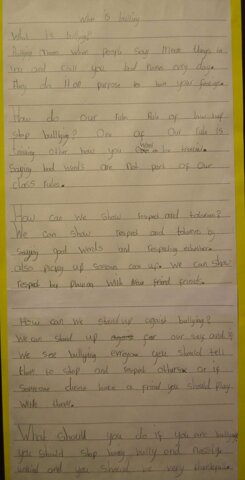 What is bullying
What is bullying?
when people say mean things to
you and call you bad names every day.
They do it on purpose to hurt your feelings.
How do our rule Rule of law
stop bullying? One of Our rule is
other how you want to be
Saying bad words are not part of Our
class rules.
How can we show respect and
We can show respect and by
saying good words and respecting
also picking up up. We can show
respect by with friends.
How can we stand up against bullying?
We can stand up for our self and if
we see bullying you should tell
them to stop and respect others or if
someone have a friend you should play
with them.
What should you do if you are bullying
you should stop being bully and
and you should be very